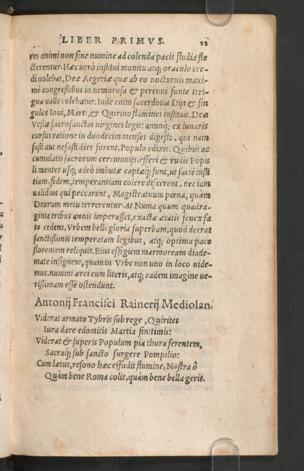 LIBER PRIMVS. 12
res animi non sine numine ad colenda pacis studia fle
cterentur. Hæc uerò institui monitu atq; oraculo cre-
di uolebat, Deæ Aegeriæ quæ ab eo nocturnis maxi
mè congressibus in nemorosa & perenni fonte irri-
gua ualle colebatur. Inde enim sacerdotia Dijs & sin
gulos Ioui, Marti, & Quirino flamines instituit. Deæ
Vestæ sacrosanctas uirgines legit: annoq; ex lunaris
cursus ratione in duodecim menses digesto, qui nam
fasti aut nefasti dies forent, Populo edixit. Quibus ac
cumulatis sacrorum ceremonijs, efferi & rudis Popu
li mentes usq; adeò imbutæ captæq; sunt, ut facilè iusti
tiam, fidem, temperantiam colere discerent, nec tam
ualidius qui peccarent, Magistratuum pœna, quàm
Deorum metu terrerentur. At Numa quum quadra-
ginta tribus annis imperasset, exactæ ætatis senex fa
to cedens, Vrbem belli gloria superbam, quod deerat
sanctissimis temperatam legibus, atq; optima pace
florentem reliquit. Eius effigiem marmoream diade-
mate insignem, quum in Vrbe non uno in loco uide-
mus, nummi ærei cum literis, atq; eadem imagine ue-
rissimam esse ostendunt.
Antonij Francisci Rainerij Mediolan.
Viderat armato Tybris sub rege, Quirites
Iura dare edomitis Martia finitimis:
Viderat & superis Populum pia thura ferentem,
Sacraq; sub sancto surgere Pompilio:
Cum lætus, resono hæc effudit flumine, Nostra ô
Quàm bene Roma colit, quàm bene bella gerit.